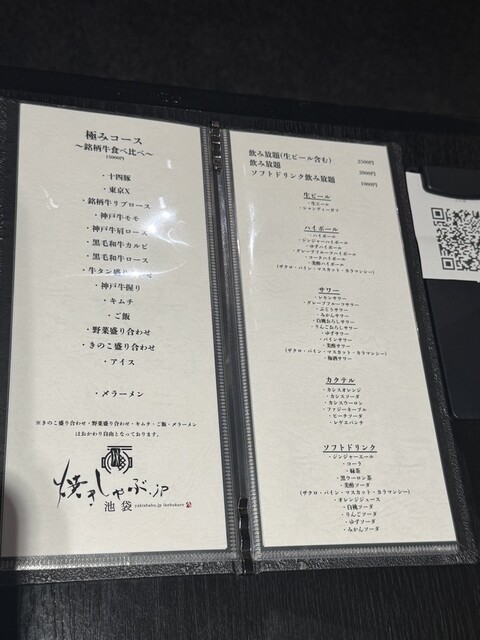 極みコース
～銘柄牛食べ比べ～
15000円
・十四豚
・東京X
・銘柄牛リブロース
・神戸牛モモ
・神戸牛肩ロース
・黒毛和牛カルビ
・黒毛和牛ロース
・牛タン盛り合わせ
・神戸牛握り
・キムチ
・ご飯
・野菜盛り合わせ
・きのこ盛り合わせ
・アイス
・〆ラーメン
※きのこ盛り合わせ・野菜盛り合わせ・キムチ・ご飯・〆ラーメン
はおかわり自由となっております。
焼きしゃぶ.jp
池袋 yakishabu.jp ikebukuro
飲み放題(生ビール含む) 2500円
飲み放題 2000円
ソフトドリンク飲み放題 1000円
生ビール
・生ビール
・シャンディーガフ
ハイボール
・ハイボール
・ジンジャーハイボール
・ゆずハイボール
・グレープフルーツハイボール
・コークハイボール
・美酢ハイボール
(ザクロ・パイン・マスカット・カラマンシー)
サワー
・レモンサワー
・グレープフルーツサワー
・ぶどうサワー
・みかんサワー
・白桃おろしサワー
・りんごおろしサワー
・ゆずサワー
・パインサワー
・美酢サワー
(ザクロ・パイン・マスカット・カラマンシー)
・梅酒サワー
カクテル
・カシスオレンジ
・カシスソーダ
・カシスウーロン
・ファジーネーブル
・ピーチソーダ
・レゲエパンチ
ソフトドリンク
・ジンジャーエール
・コーラ
・緑茶
・黒ウーロン茶
・美酢ソーダ
(ザクロ・パイン・マスカット・カラマンシー)
・オレンジジュース
・白桃ソーダ
・りんごソーダ
・ゆずソーダ
・みかんソーダ